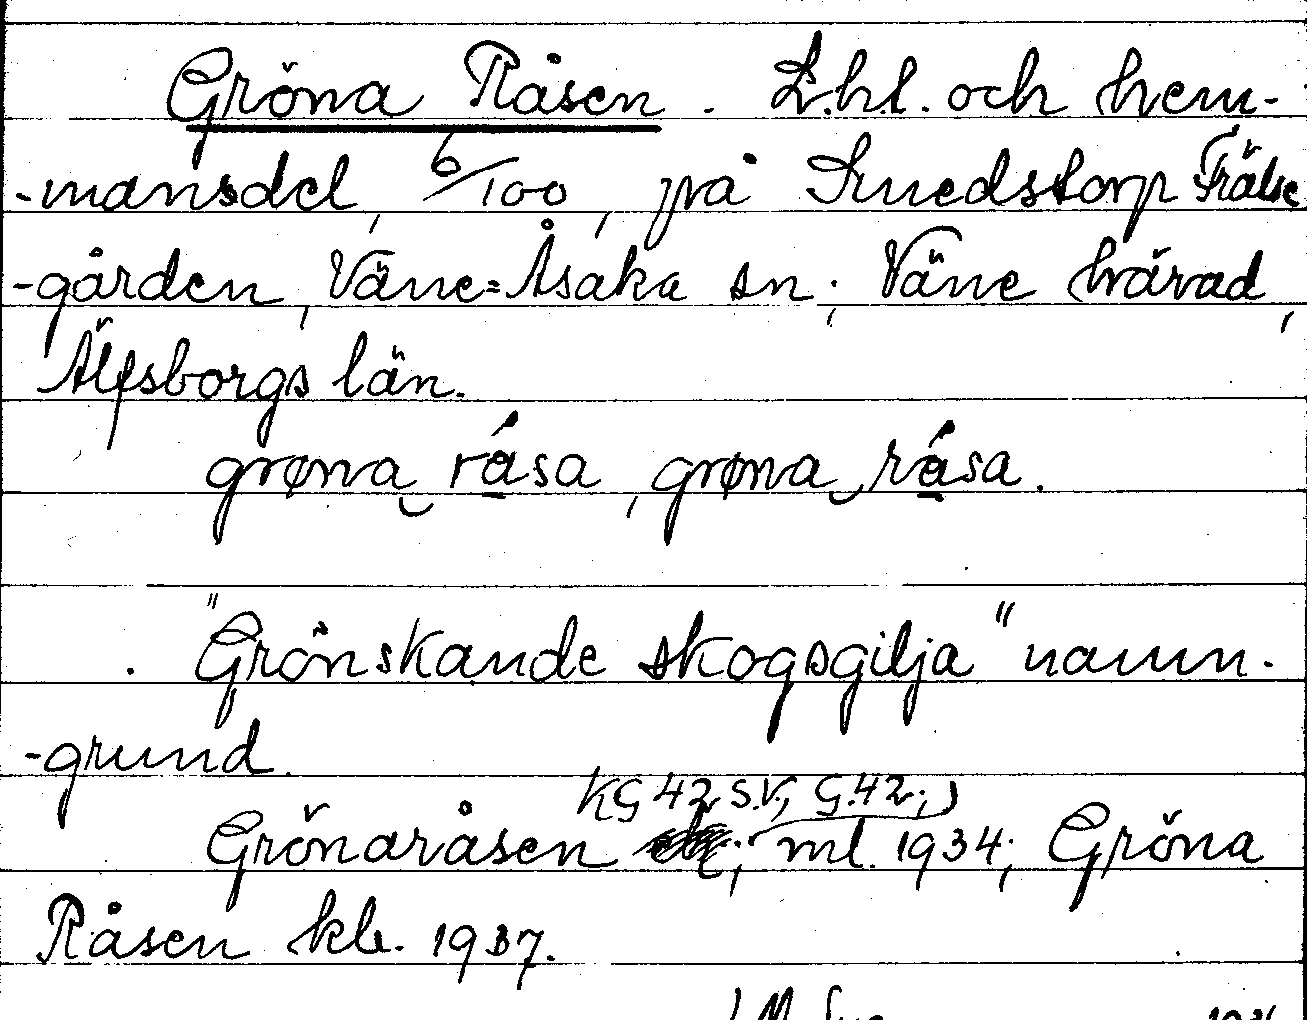 Gröna Råsen. L.hl. och hem-
-mansdel, 6/100, på Smedstorp Frälse
-gården, Väne=Åsaka sn; Väne härad,
Älfsborgs län.
grøna rása, grøna rása.
"Grönskande skogsgilja" namn-
-grund.
KG 42 S.V., G.42;
Grönaråsen ; ml. 1934; Gröna
Råsen kb. 1937.